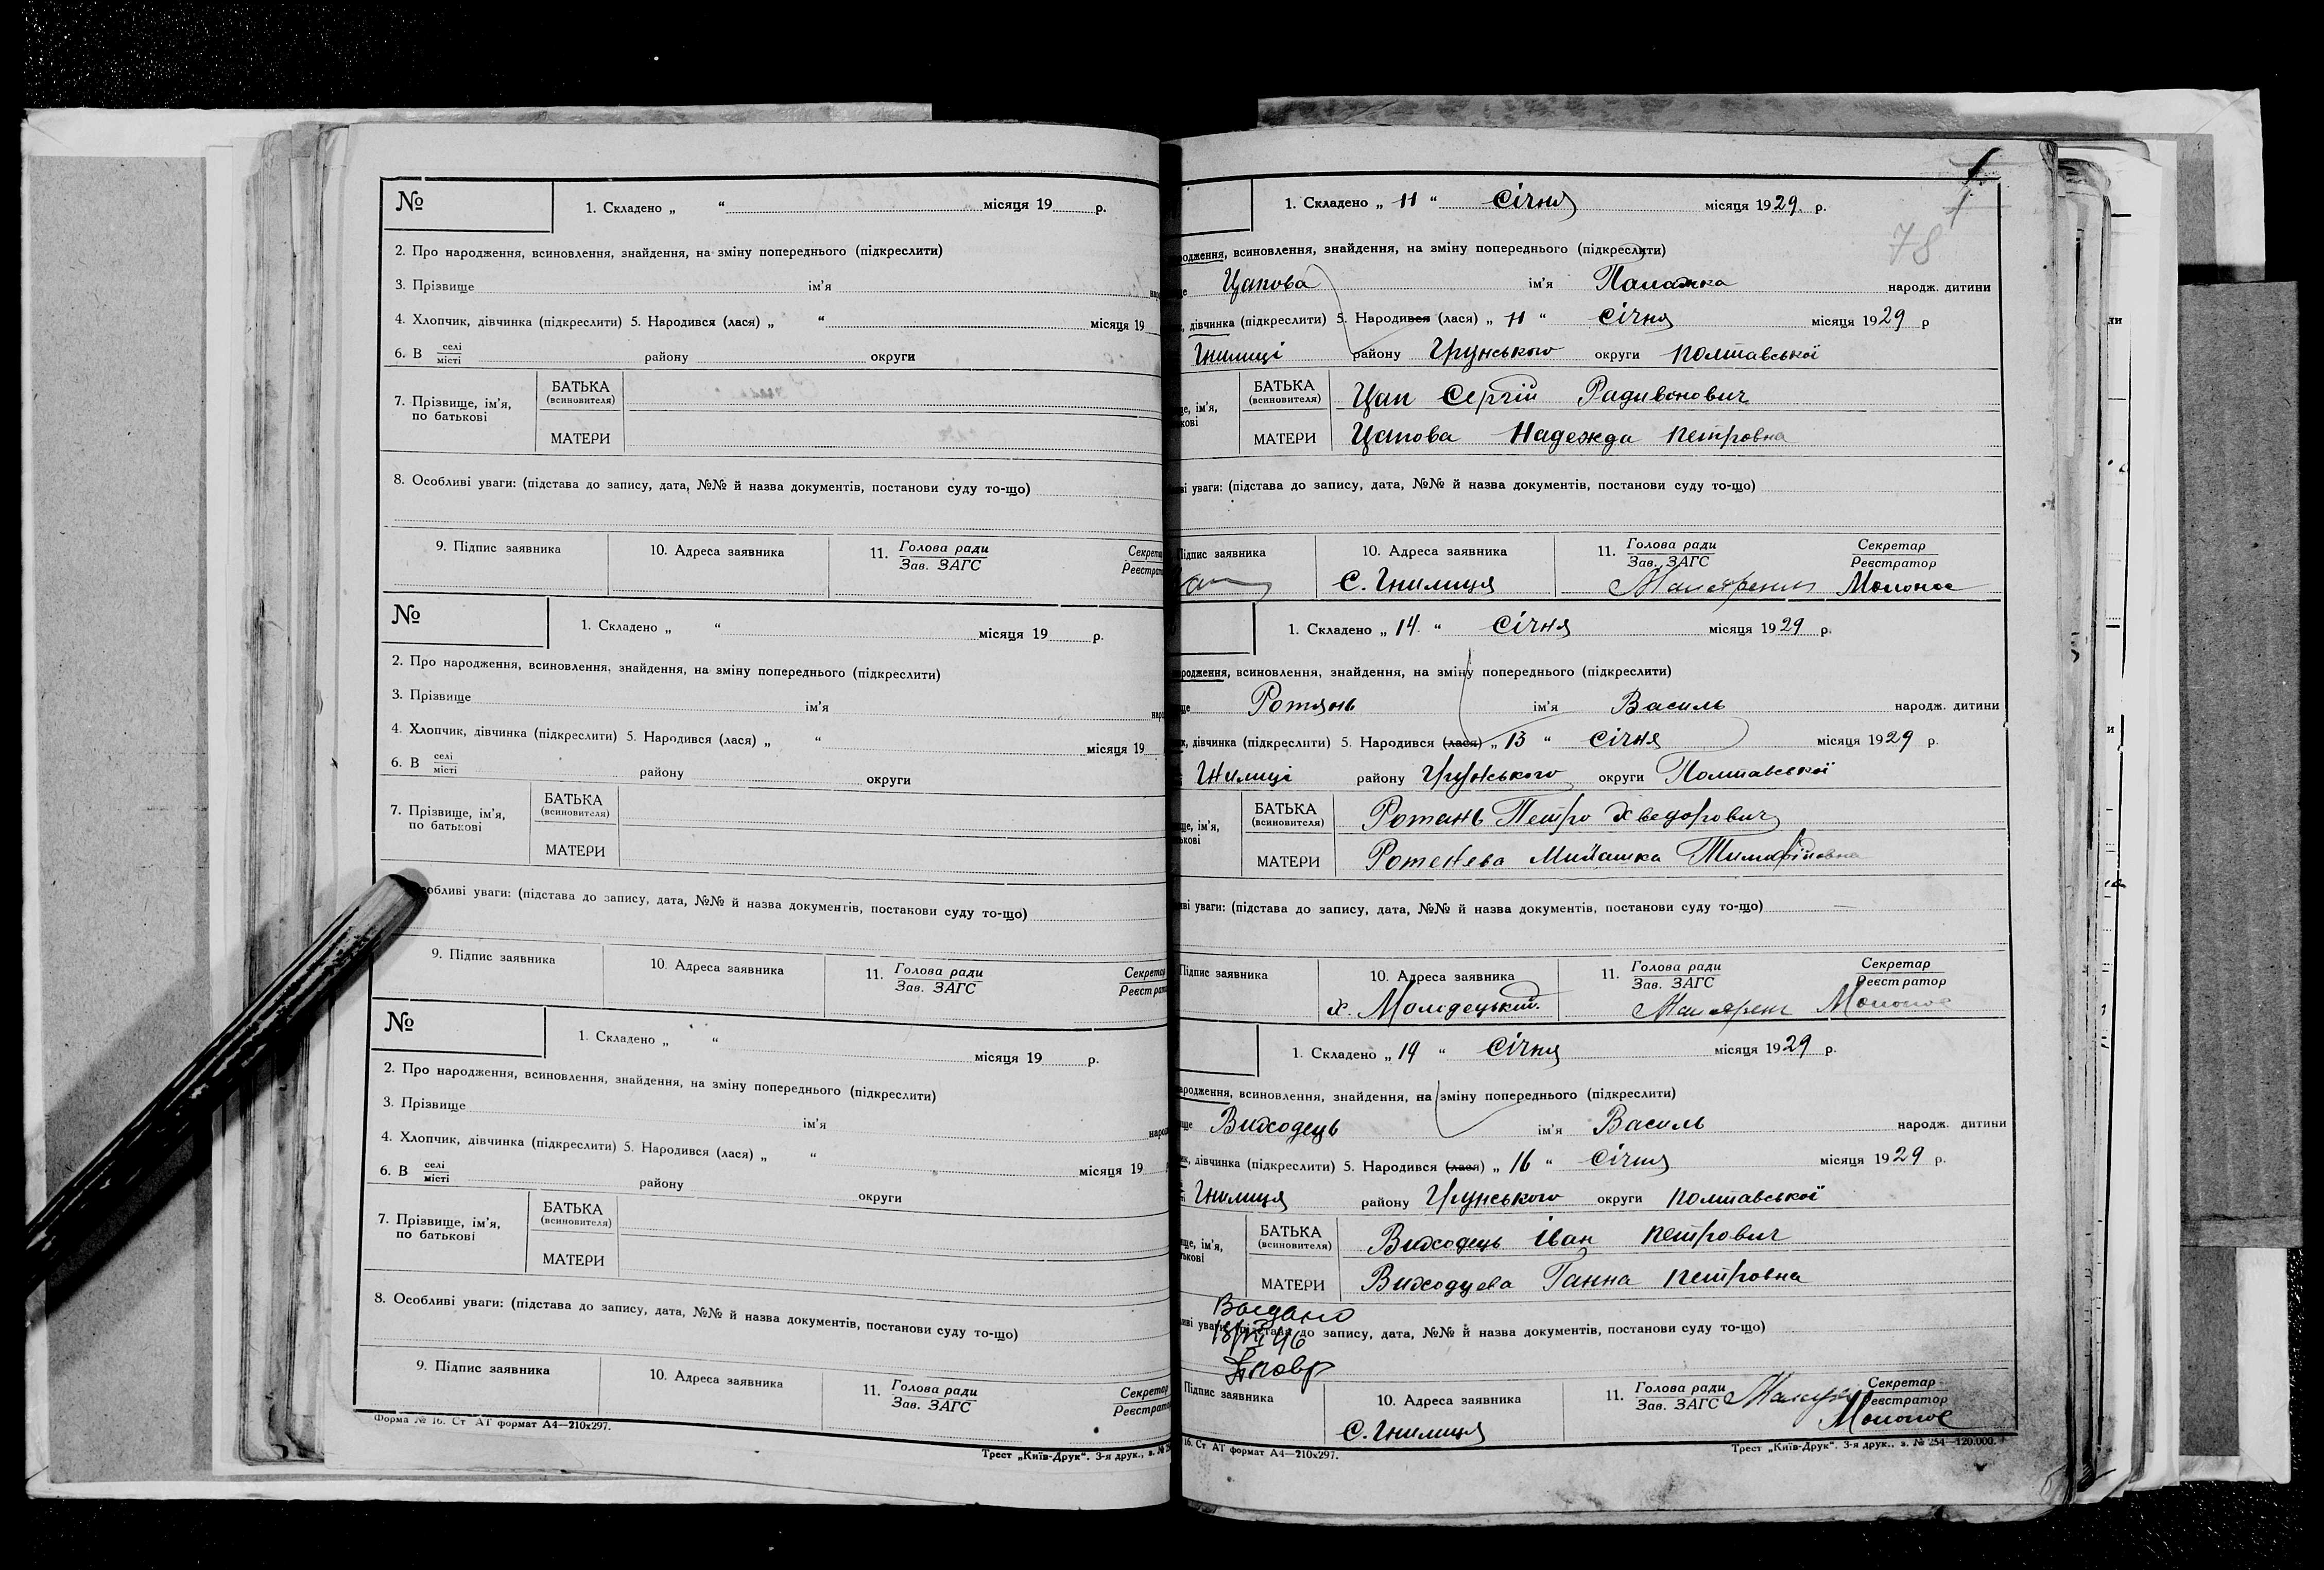 №
1. Складено „ “ місяця 19 р.
2. Про народження, всиновлення, знайдення, на зміну попереднього (підкреслити)
3. Прізвище ім'я
4. Хлопчик, дівчинка (підкреслити) 5. Народився (лася) „ “ місяця 19
6. В селі місті району округи
7. Прізвище, ім'я, по батькові
БАТЬКА (всиновителя)
МАТЕРИ
8. Особливі уваги: (підстава до запису, дата, №№ й назва документів, постанови суду то-що)
9. Підпис заявника 10. Адреса заявника 11. Голова ради Секрета
Зав. ЗАГС Реєстрат
№
1. Складено „ “ місяця 19 р.
2. Про народження, всиновлення, знайдення, на зміну попереднього (підкреслити)
3. Прізвище ім'я
4. Хлопчик, дівчинка (підкреслити) 5. Народився (лася) „ “ місяця 19
6. В селі місті району округи
7. Прізвище, ім'я, по батькові
БАТЬКА (всиновителя)
МАТЕРИ
обливі уваги: (підстава до запису, дата, №№ й назва документів, постанови суду то-що)
9. Підпис заявника 10. Адреса заявника 11. Голова ради Секретар
Зав. ЗАГС Реєстрат
№
1. Складено „ “ місяця 19 р.
2. Про народження, всиновлення, знайдення, на зміну попереднього (підкреслити)
3. Прізвище ім'я
4. Хлопчик, дівчинка (підкреслити) 5. Народився (лася) „ “ місяця 19
6. В селі місті району округи
7. Прізвище, ім'я, по батькові
БАТЬКА (всиновителя)
МАТЕРИ
8. Особливі уваги: (підстава до запису, дата, №№ й назва документів, постанови суду то-що)
9. Підпис заявника 10. Адреса заявника 11. Голова ради Секретар
Зав. ЗАГС Реєстрат
Форма № 16. Ст АТ формат А4—210х297.
Трест „Київ-Друк“. 3-я друк., з. №
1. Складено „ 11 “ Січня місяця 1929 р.
78
одження, всиновлення, знайдення, на зміну попереднього (підкреслити)
Цапова ім'я Палажка народж. дитини
дівчинка (підкреслити) 5. Народився (лася) „ 11 “ Січня місяця 1929 р
Гнилиці району Грунського округи Полтавської
БАТЬКА (всиновителя) Цап Сергій Радивонович
МАТЕРИ Цапова Надежда Петровна
ві уваги: (підстава до запису, дата, №№ й назва документів, постанови суду то-що)
Підпис заявника 10. Адреса заявника 11. Голова ради Секретар
Зав. ЗАГС Реєстратор
С. Гнилиця
1. Складено „ 14. “ Січня місяця 1929 р.
родження, всиновлення, знайдення, на зміну попереднього (підкреслити)
Ротань ім'я Василь народж. дитини
дівчинка (підкреслити) 5. Народився (лася) „ 13 “ Січня місяця 1929 р.
Гнилиці району Грунського округи Полтавської
БАТЬКА (всиновителя) Ротань Петро Хведорович
МАТЕРИ Ротенева
ві уваги: (підстава до запису, дата, №№ й назва документів, постанови суду то-що)
Підпис заявника 10. Адреса заявника 11. Голова ради Секретар
Зав. ЗАГС Реєстратор
х. Молодецький.
1. Складено „ 19 “ Січня місяця 1929 р.
ародження, всиновлення, знайдення, на зміну попереднього (підкреслити)
Виходець ім'я Василь народж. дитини
дівчинка (підкреслити) 5. Народився (лася) „ 16 “ Січня місяця 1929 р.
Гнилиця району Грунського округи Полтавської
БАТЬКА (всиновителя) Виходець Іван Петрович
МАТЕРИ Виходцева Ганна Петровна
уваги: (підстава до запису, дата, №№ й назва документів, постанови суду то-що)
Підпис заявника 10. Адреса заявника 11. Голова ради Секретар
Зав. ЗАГС Реєстратор
С. Гнилиця
16. Ст АТ формат А4—210х297.
Трест „Київ-Друк“. 3-я друк., з. № 254—120.000.